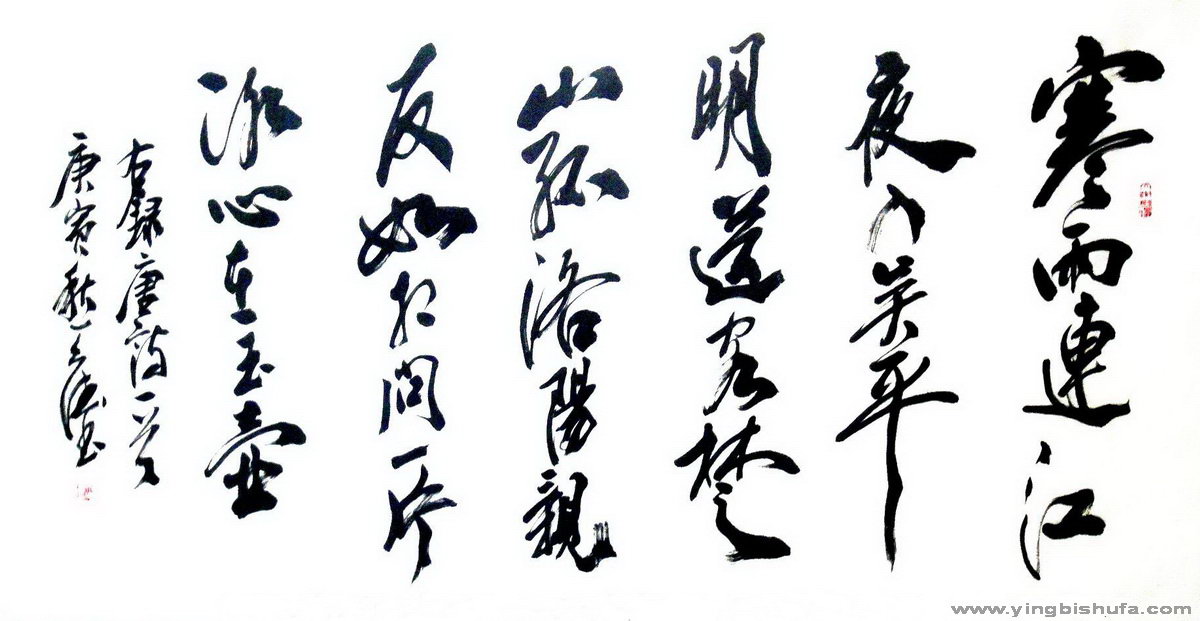 寒雨連江
夜入吴平
明送客楚
山孤洛陽親
友如相問一片
冰心在玉壶
右録唐詩一首
庚寅秋
www.yingbishufa.com